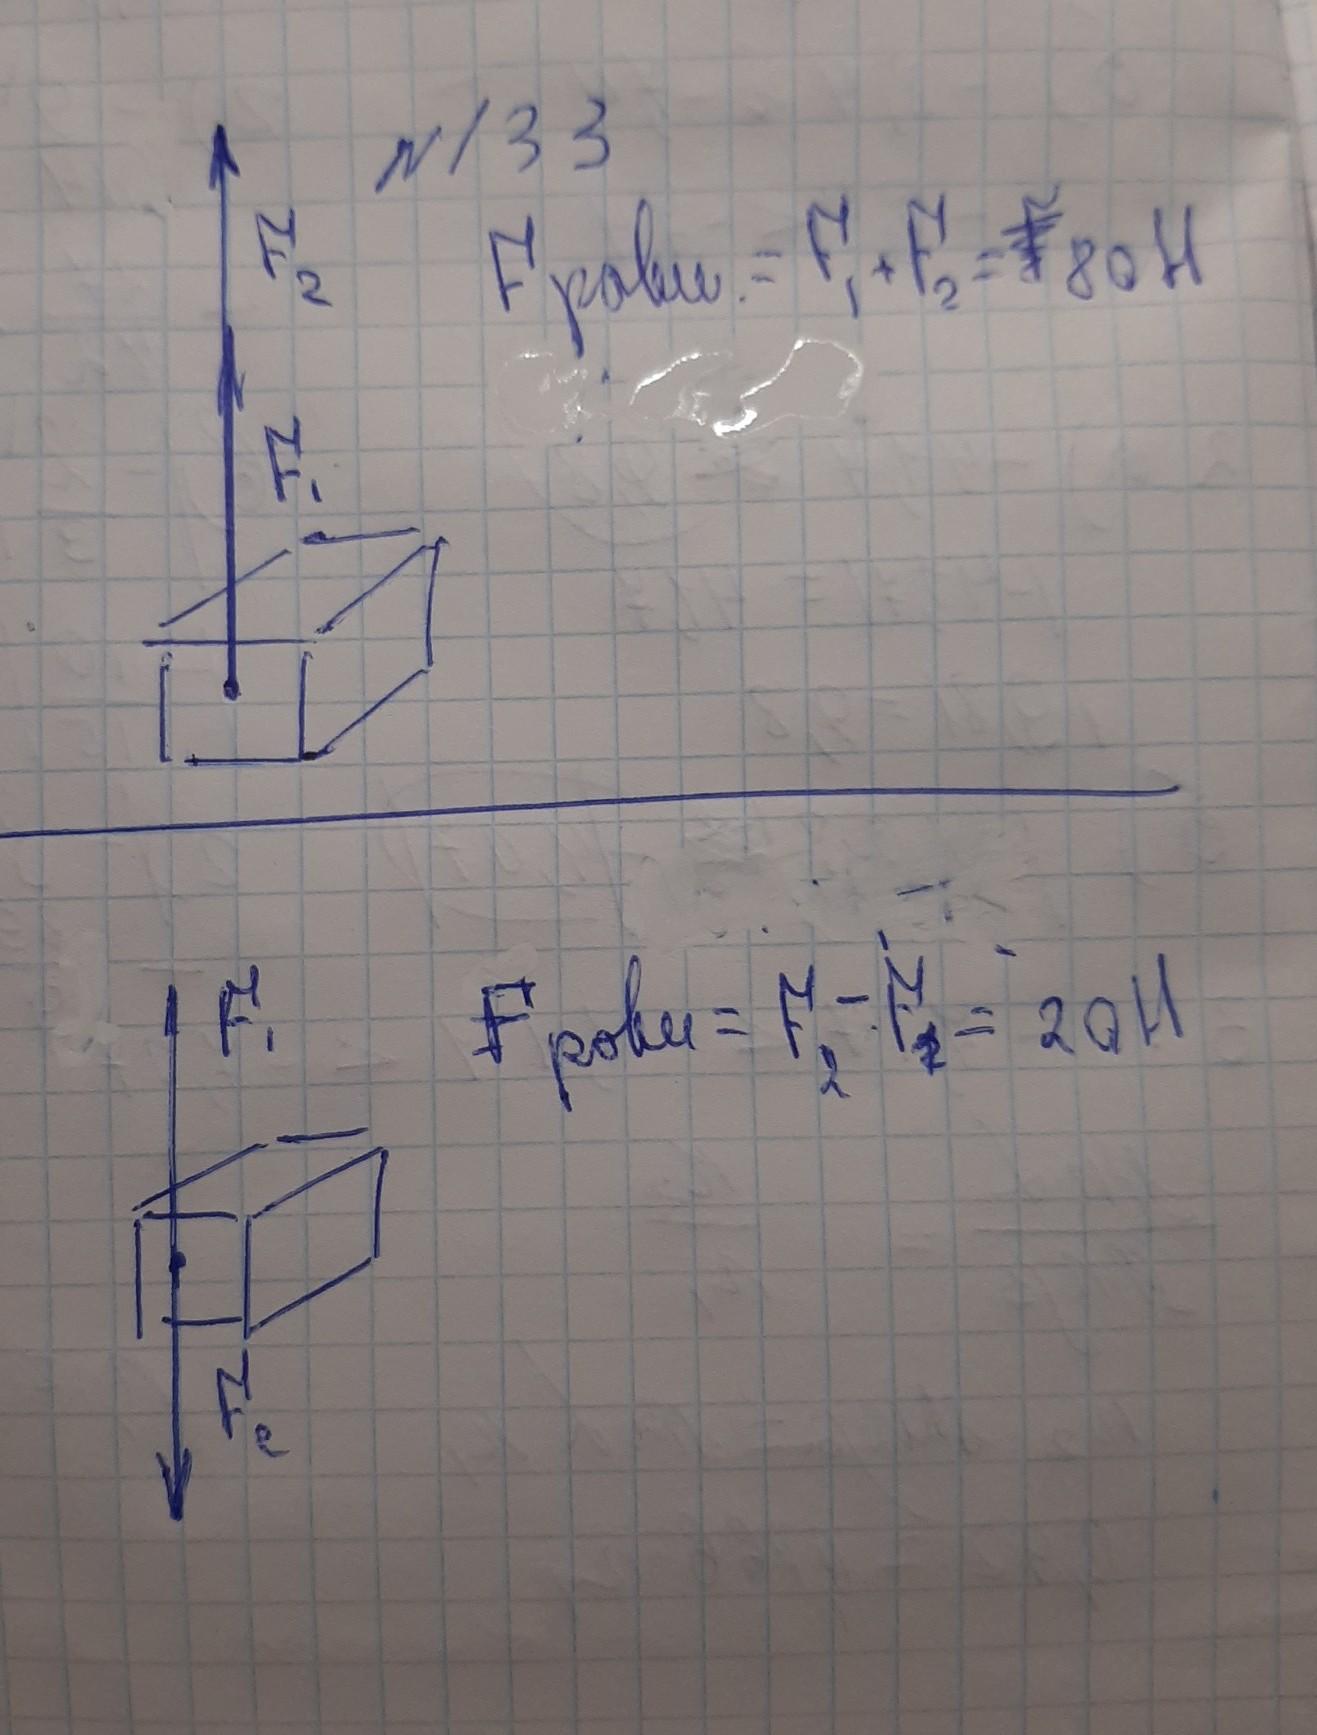 №133
F₂
Fрівн. = F₁ + F₂ = 80 Н
F₁
F₁
Fрівн = F₂ - F₁ = 20 Н
F₂